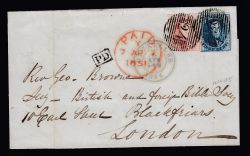 PAID
1851
PD
Rev Geo. Browne
Secy British and Foreign Bible Socy
10 Earl Street Blackfriars
London